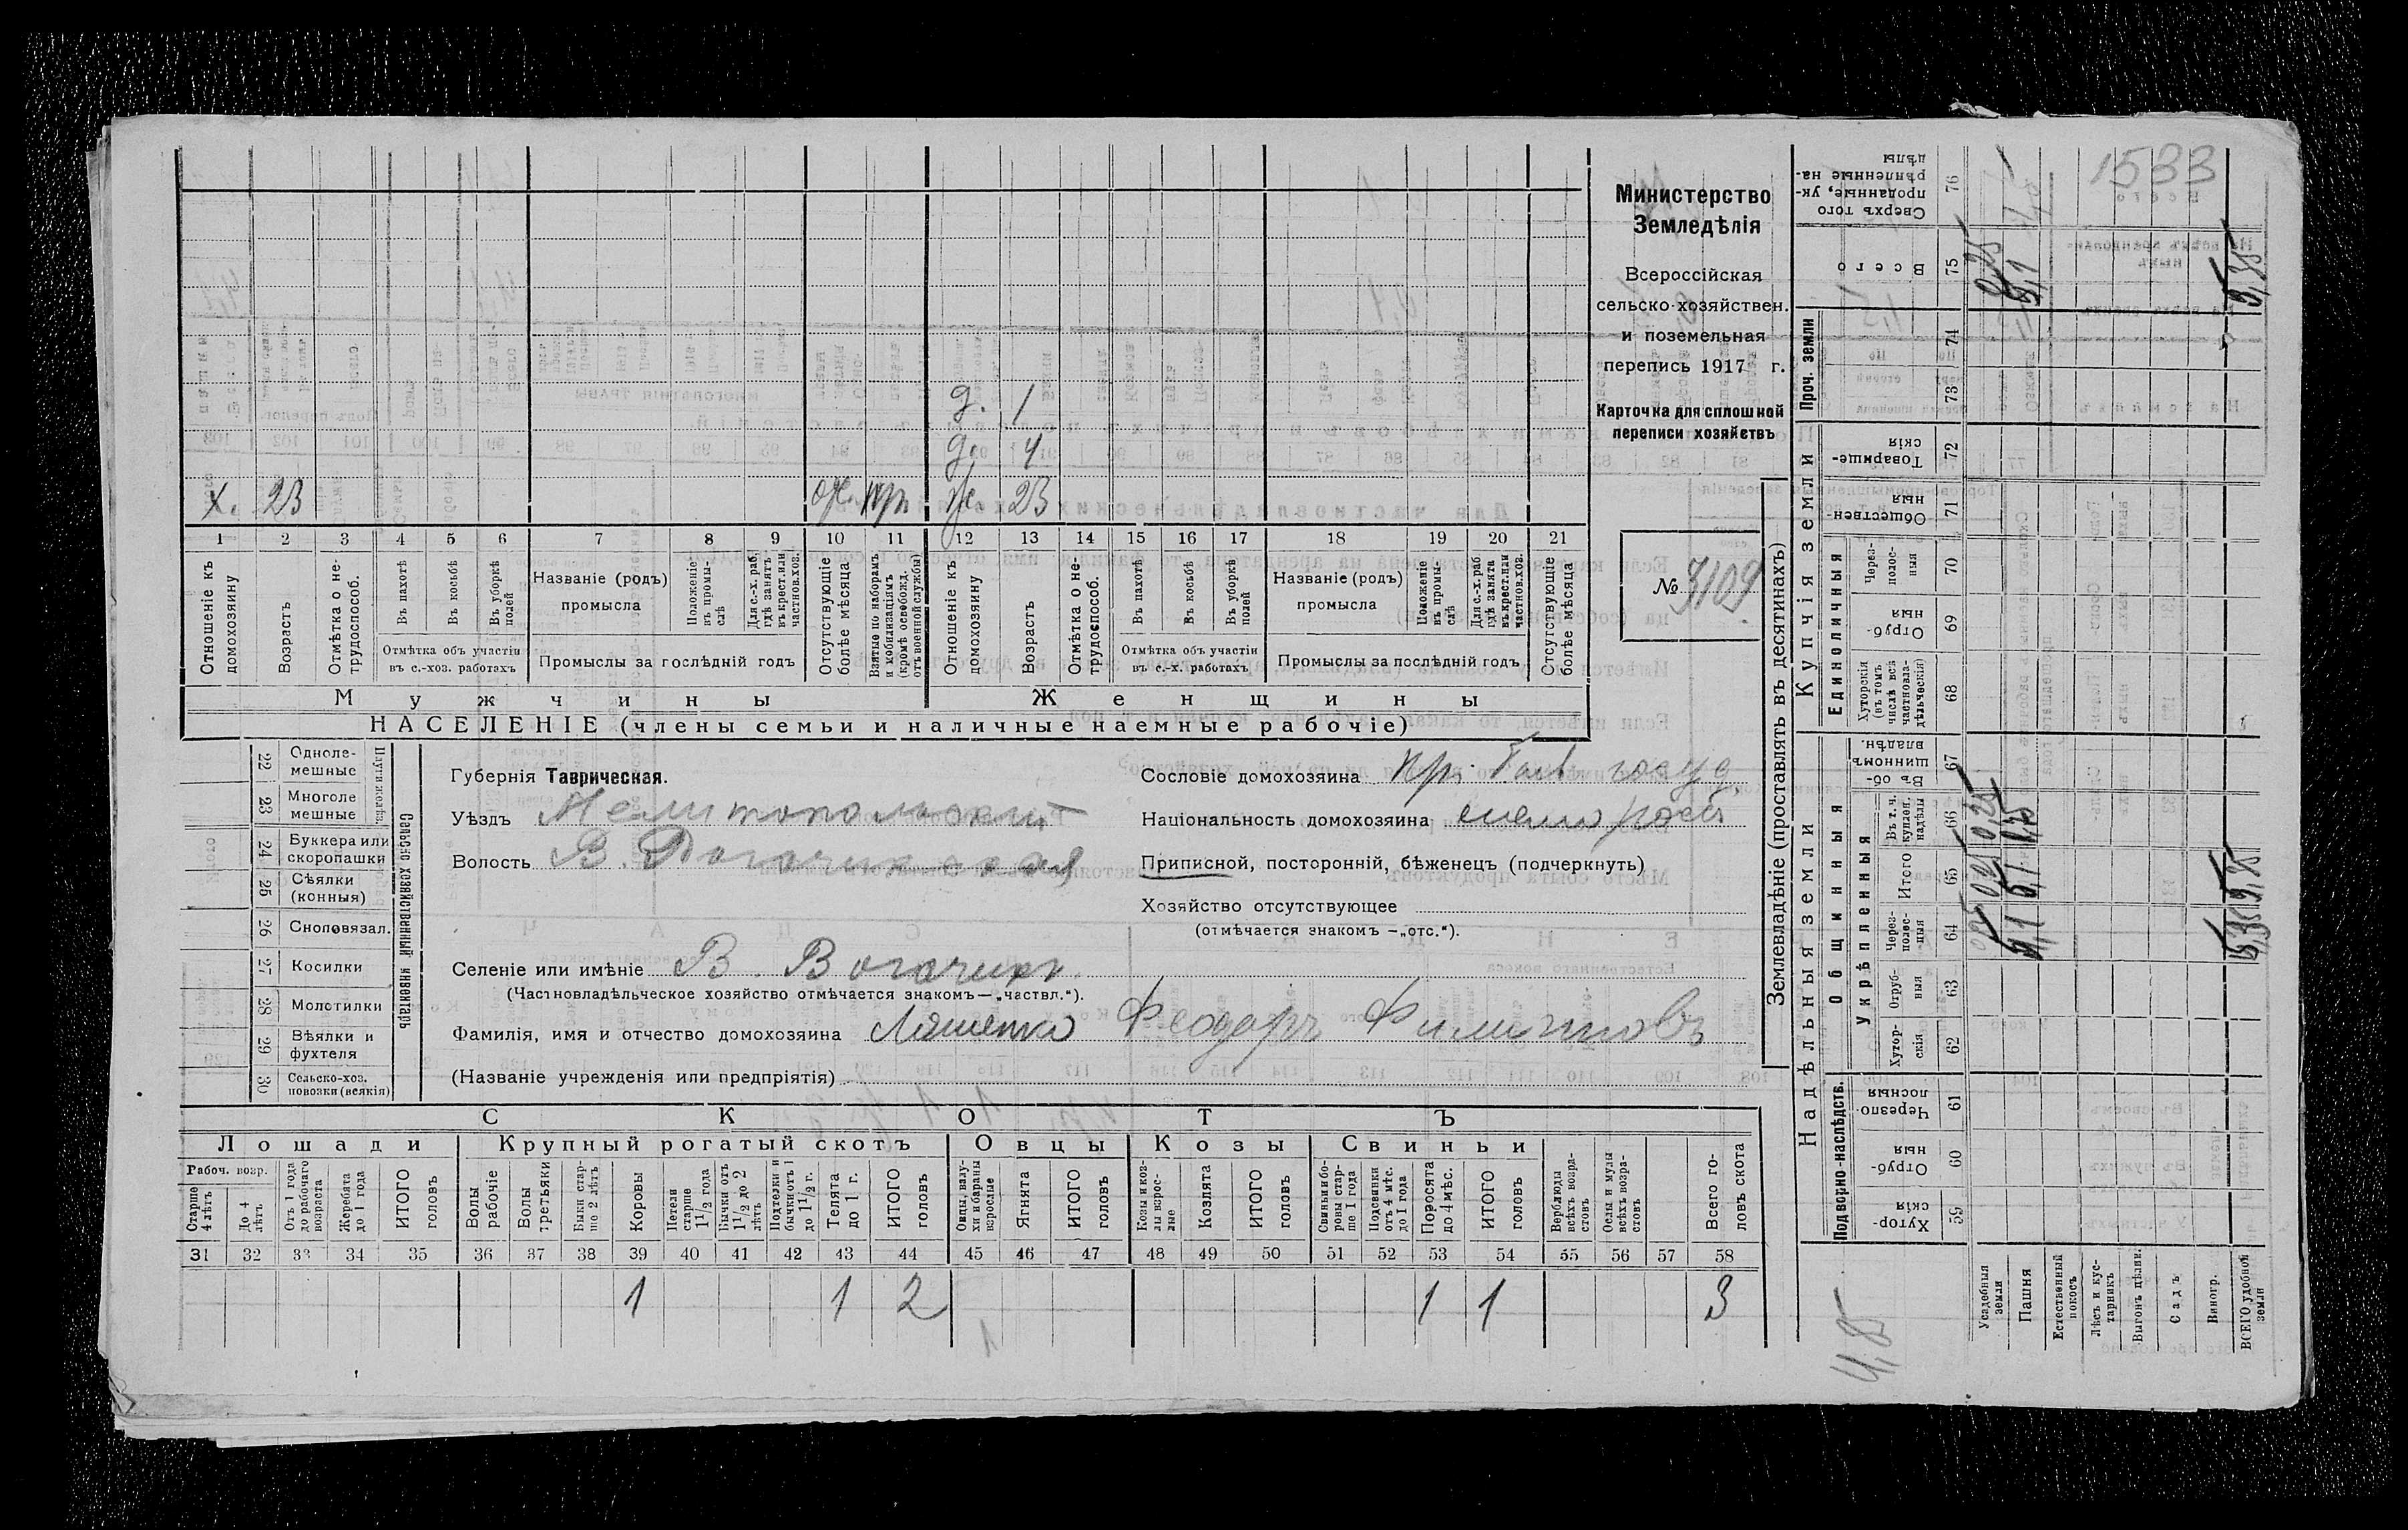 1533
Министерство
Земледѣлія
Всероссійская
сельско-хозяйствен.
и поземельная
перепись 1917 г.
Карточка для сплошной
переписи хозяйствъ
№ 3109
д. 1
д. 4
х. 23 от. пр. ж. 23
1 2 3 4 5 6 7 8 9 10 11 12 13 14 15 16 17 18 19 20 21
Отношеніе къ домохозяину
Возрастъ
Отмѣтка о не-трудоспособ.
Въ пахотѣ
Въ косьбѣ
Въ уборкѣ полей
Отмѣтка объ участіи въ с.-хоз. работахъ
Названіе (родъ) промысла
Положеніе въ промы-слѣ
Для с.-х. раб. гдѣ занятъ въ крест. или частнов. хоз.
Промыслы за послѣдній годъ
Отсутствующіе болѣе мѣсяца
Взятые по наборамъ и мобилизаціямъ (кромѣ освобожд. отъ военной службы)
Отношеніе къ домохозяину
Возрастъ
Отмѣтка о не-трудоспособ.
Въ пахотѣ
Въ косьбѣ
Въ уборкѣ полей
Отмѣтка объ участіи въ с.-х. работахъ
Названіе (родъ) промысла
Положеніе въ промы-слѣ
Для с.-х. раб гдѣ занята въ крест. или частнов. хоз.
Промыслы за послѣдній годъ
Отсутствующіе болѣе мѣсяца
Мужчины Женщины
НАСЕЛЕНІЕ (члены семьи и наличные наемные рабочіе)
Сельско хозяйственный инвентарь
22 Одноле-мешные
23 Многоле мешные
24 Буккера или скоропашки
25 Сѣялки (конныя)
26 Сноповязал.
27 Косилки
28 Молотилки
29 Вѣялки и фухтеля
30 Сельско-хоз. повозки (всякія)
Губернія Таврическая.
Уѣздъ Мелитопольскій
Волость В. Рогачикская
Сословіе домохозяина
Національность домохозяина
Приписной, посторонній, бѣженецъ (подчеркнуть)
Хозяйство отсутствующее
(отмѣчается знакомъ —„отс.“).
Селеніе или имѣніе В. Рогачик.
(Частновладѣльческое хозяйство отмѣчается знакомъ—„частвл.“).
Фамилія, имя и отчество домохозяина Ляшенко Феодоръ Филиповъ
(Названіе учрежденія или предпріятія)
СКОТЪ
Лошади Крупный рогатый скотъ Овцы Козы Свиньи
Рабоч. возр.
Старше 4 лѣтъ
До 4 лѣтъ
Отъ 1 года до рабочаго возраста
Жеребята до 1 года
ИТОГО головъ
Волы рабочіе
Волы третьяки
Быки стар-ше 2 лѣтъ
Коровы
Нетели старше 1 1/2 года
Бычки отъ 1 1/2 до 2 лѣтъ
Подтелки и бычки отъ 1 до 1 1/2 г.
Телята до 1 г.
ИТОГО головъ
Овцы, валу-хи и бараны взрослые
Ягнята
ИТОГО головъ
Козы и коз-лы взрос-лые
Козлята
ИТОГО головъ
Свиньи и бо-ровы стар-ше 1 года
Подсвинки отъ 4 мѣс. до 1 года
Поросята до 4 мѣс.
ИТОГО головъ
Верблюды всѣхъ возра-стовъ
Ослы и мулы всѣхъ возра-стовъ
Всего го-ловъ скота
31 32 33 34 35 36 37 38 39 40 41 42 43 44 45 46 47 48 49 50 51 52 53 54 55 56 57 58
1 1 2 1 1 3
Землевладѣніе (проставлять въ десятинахъ)
Надѣльныя земли
Купчія земли
Проч. земли
Подворно-наслѣдств.
Общинныя
Укрѣпленныя
Единоличныя
Хутор-скія 59
Отруб-ныя 60
Черезпо-лосныя 61
Хутор-скія 62
Отруб-ныя 63
Через-полос-ныя 64
Итого 65
Въ т. ч. куплен. надѣлы 66
Въ об-щинномъ владѣн. 67
Хуторскія (въ томъ числѣ всѣ частновла-дѣльческія) 68
Отруб-ныя 69
Через-полос-ныя 70
Обществен-ныя 71
Товарище-скія 72
73
74
Всего 75
Сверхъ того проданные, ук-рѣпленные на-дѣлы 76
Усадебныя земли
Пашня
Естественный покосъ
Лѣсъ и кус-тарникъ
Выгонъ цѣлин.
Садъ
Виногр.
ВСЕГО удобной земли
4,8